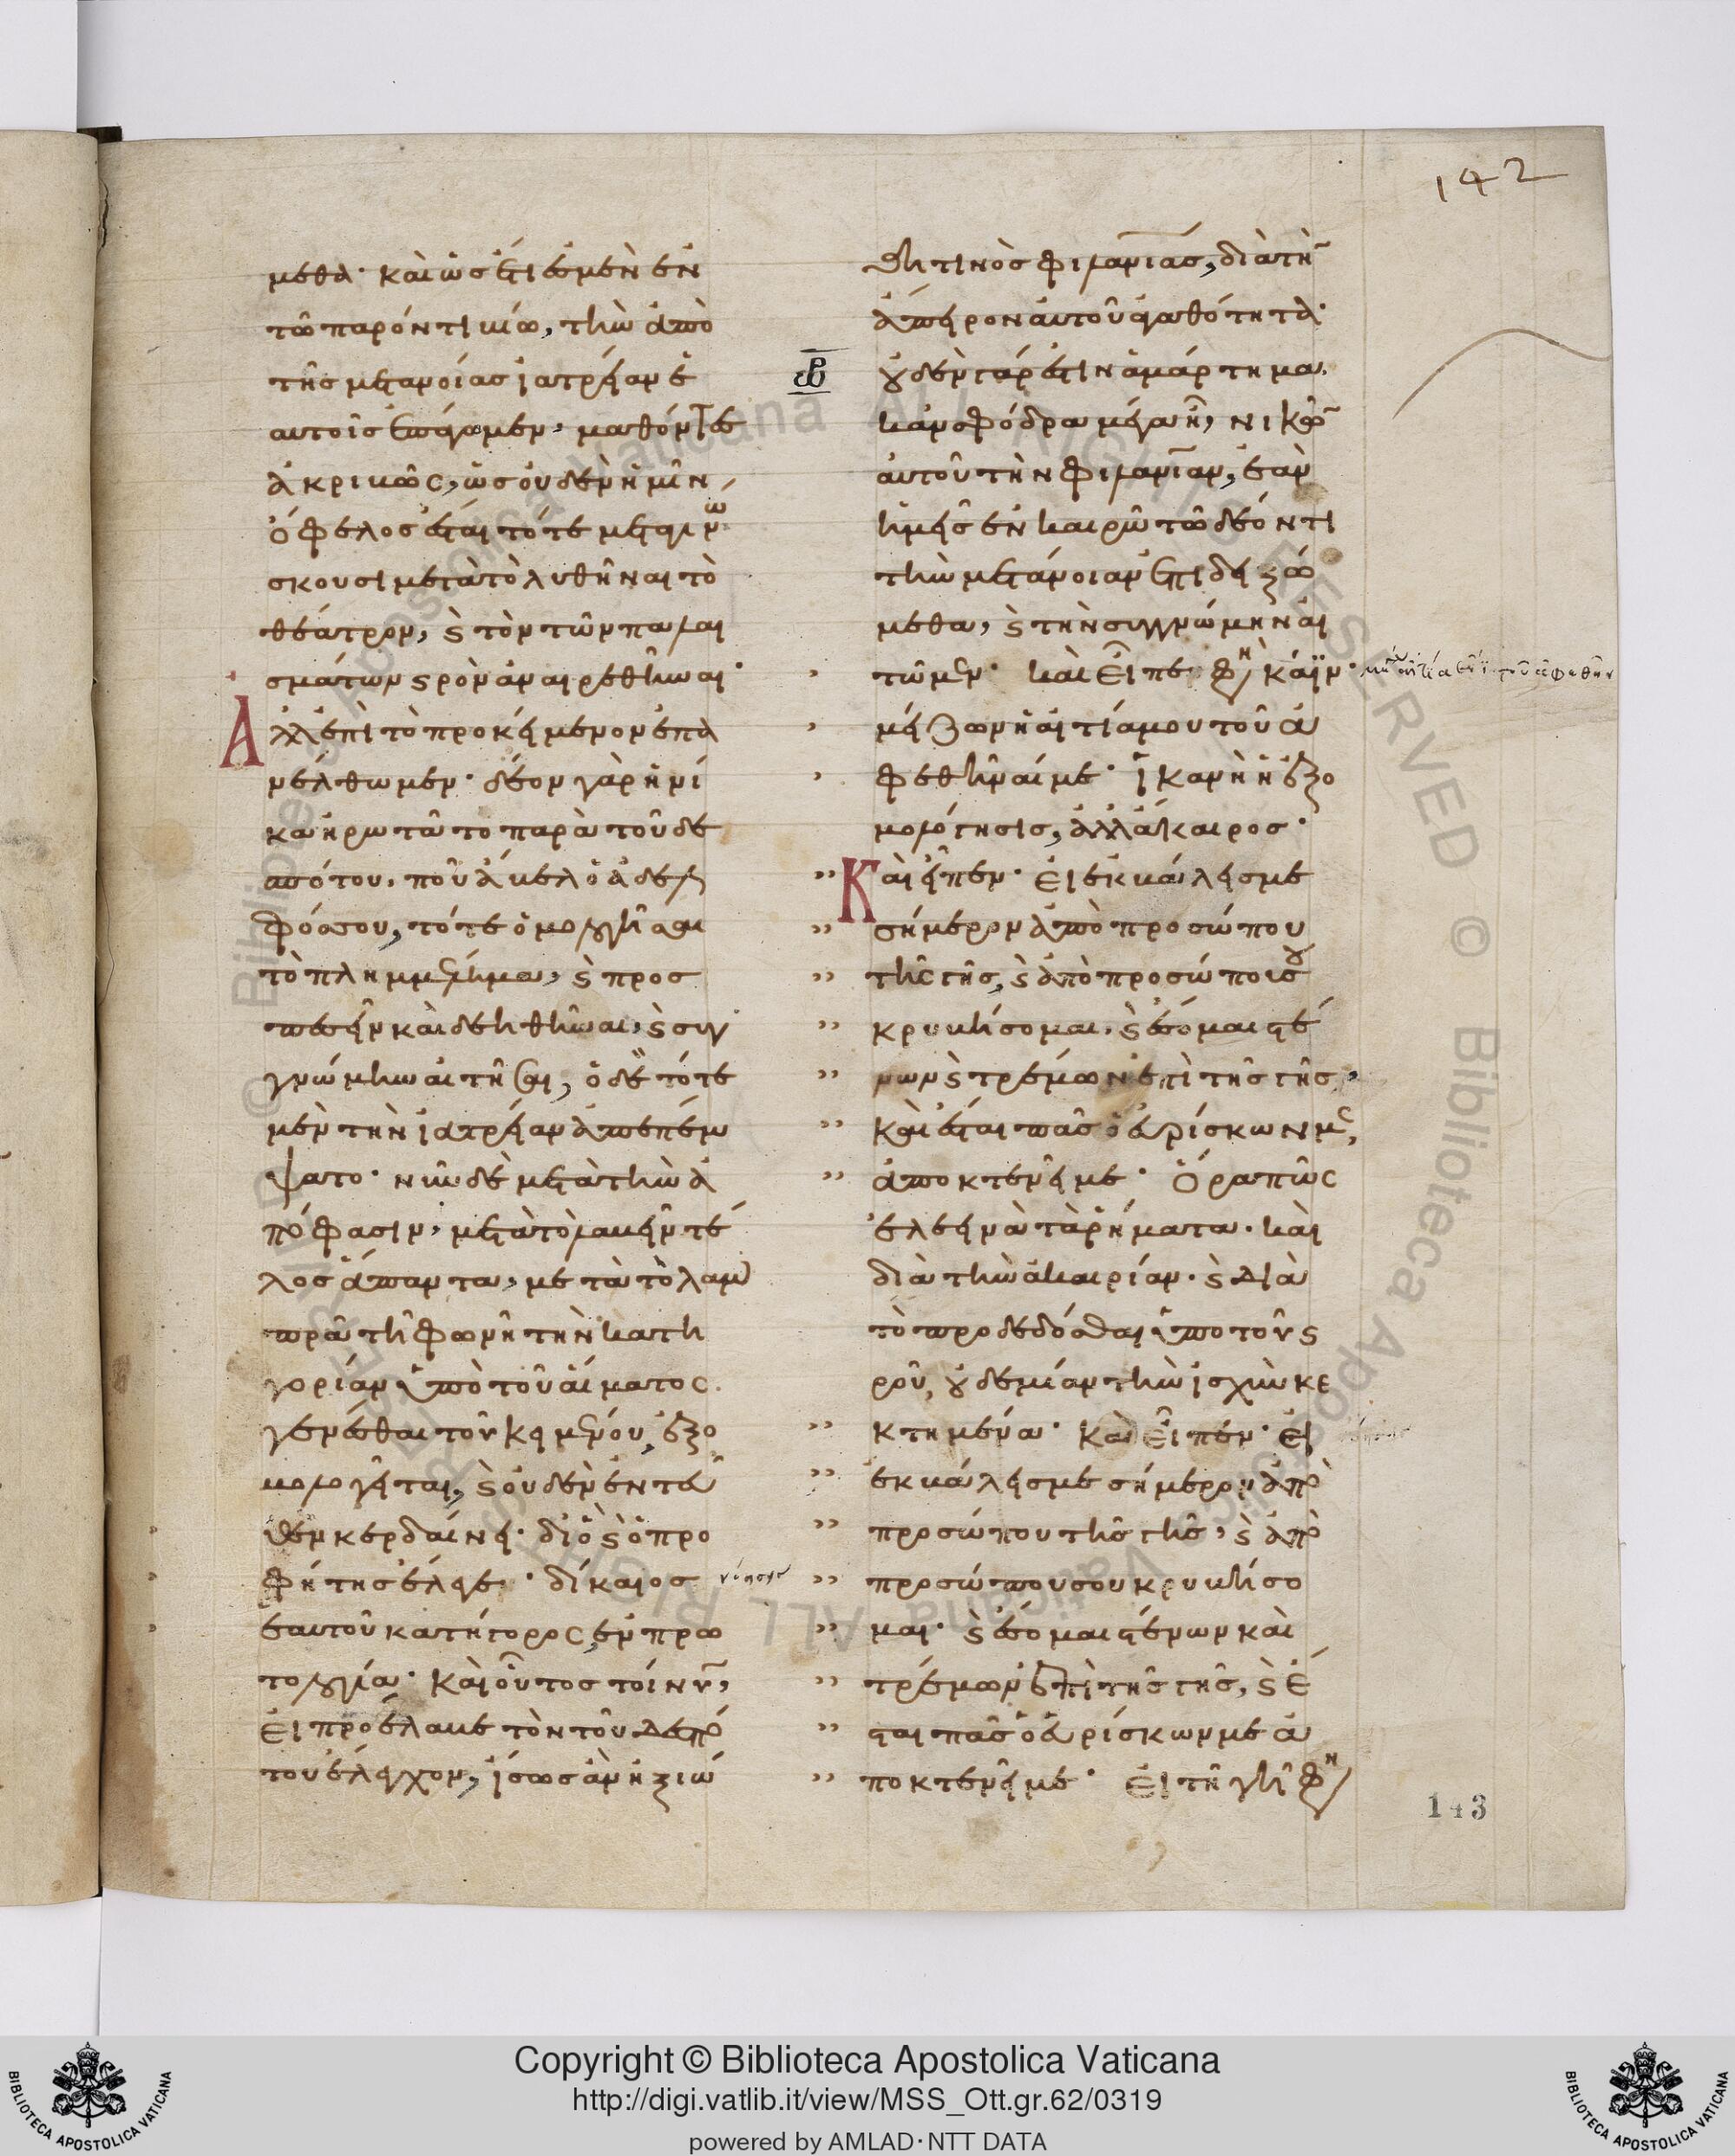 142
μεθα· καὶ ὡς ἔτι ἐσμὲν ἐν
τῶ παρόντι βίω, τὴν ἀπὸ
τῆς μετανοίας ἰατρείαν ἑ
αυτοῖς ἐπάγωμεν, μαθόντες
ἀκριβῶς, ὡς οὐδὲν ἡμῖν
ὄφελος ἔσται τότε μεταγινώ
σκουσι μετὰ τὸ λυθῆναι τὸ
θέατρον, ϛ τὸν τῶν παλαι
σμάτων ϛρὸν ἀναιρεθῆναι·
Ἀλλ' ἐπὶ τὸ προκείμενον ἐπα
νέλθωμεν· δέον γὰρ ἡνί
κα ἠρωτᾶτο παρὰ τοῦ δε
σπότου, ποῦ ἄβελ ὁ ἀδελ
φός σου, τότε ὁμολογῆσαι
τὸ πλημμέλημα, ϛ προσ
πεσεῖν καὶ δεηθῆναι, ϛ συγ
γνώμην αἰτῆσαι, ὁ δὲ τότε
μὲν τὴν ἰατρείαν ἀπεπέμ
ψατο· νῦν δὲ μετὰ τὴν ἀ
πόφασιν, μετὰ τὸ λαβεῖν τέ
λος ἅπαντα, μετὰ τὸ λαμ
πρᾶ τῆ φωνῆ τὴν κατη
γορίαν ὑπὸ τοῦ αἵματος
γενέσθαι τοῦ κειμένου, ἐξο
μολογεῖται, ϛ οὐδὲν ἐντεῦ
θεν κερδαίνει· διὸ ϛ ὁ προ
φήτης ἔλεγε· δίκαιος
ἑαυτοῦ κατήγορος ἐν πρω
τολογία· καὶ οὗτος τοίνυν,
εἰ προέλαβε τὸν τοῦ δεσπό
του ἔλεγχον, ἴσως ἂν ἠξιώ
θη τινὸς φιλανίας, διὰ τὴν
ἄπειρον αὐτοῦ ἀγαθότητα·
οὐδὲν γάρ ἐστιν ἁμάρτημα,
κἂν σφόδρα μέγα ἦ, νικῶν
αὐτοῦ τὴν φιλανίαν, ἐὰν
ἡμεῖς ἐν καιρῶ τῶ δέοντι
τὴν μετάνοιαν ἐπιδειξώ
μεθα, ϛ τὴν συγγνώμην αἰ
τῶμεν· καὶ εἶπε φη κάϊν·
μείζων ἡ αἰτία μου τοῦ ἀ
φεθῆναί με· ἱκανὴ ἡ ἐξο
μολόγησις, ἀλλ' ἄκαιρος·
Καὶ εἶπεν· εἰ ἐκβάλεις με
σήμερον ἀπὸ προσώπου
τῆς γῆς, ϛ ἀπὸ προσώπου σου
κρυβήσομαι, ϛ ἔσομαι στέ
νων ϛ τρέμων ἐπὶ τῆς γῆς,
καὶ ἔσται πᾶς ὁ εὑρίσκων με,
ἀποκτενεῖ με· Ὅρα πῶς
ἐλεεινὰ τὰ ῥήματα, καὶ
διὰ τὴν ἀκαιρίαν, ϛ διὰ
τὸ προδεδόσθαι ὑπὸ τοῦ ϛ
ροῦ, οὐδεμίαν τὴν ἰσχὺν κε
κτημένα· καὶ εἶπεν· εἰ
ἐκβάλεις με σήμερον ἀπὸ
προσώπου τῆς γῆς, ϛ ἀπὸ
προσώπου σου κρυβήσο
μαι· ϛ ἔσομαι στένων καὶ
τρέμων ἐπὶ τῆς γῆς, ϛ ἔ
σται πᾶς ὁ εὑρίσκων με ἀ
ποκτενεῖ με· εἰ τῆ γῆ φη
143
© Biblioteca Apostolica Vaticana ALL RIGHTS RESERVED
Copyright © Biblioteca Apostolica Vaticana
http://digi.vatlib.it/view/MSS_Ott.gr.62/0319
powered by AMLAD·NTT DATA
BIBLIOTECA APOSTOLICA VATICANA
BIBLIOTECA APOSTOLICA VATICANA